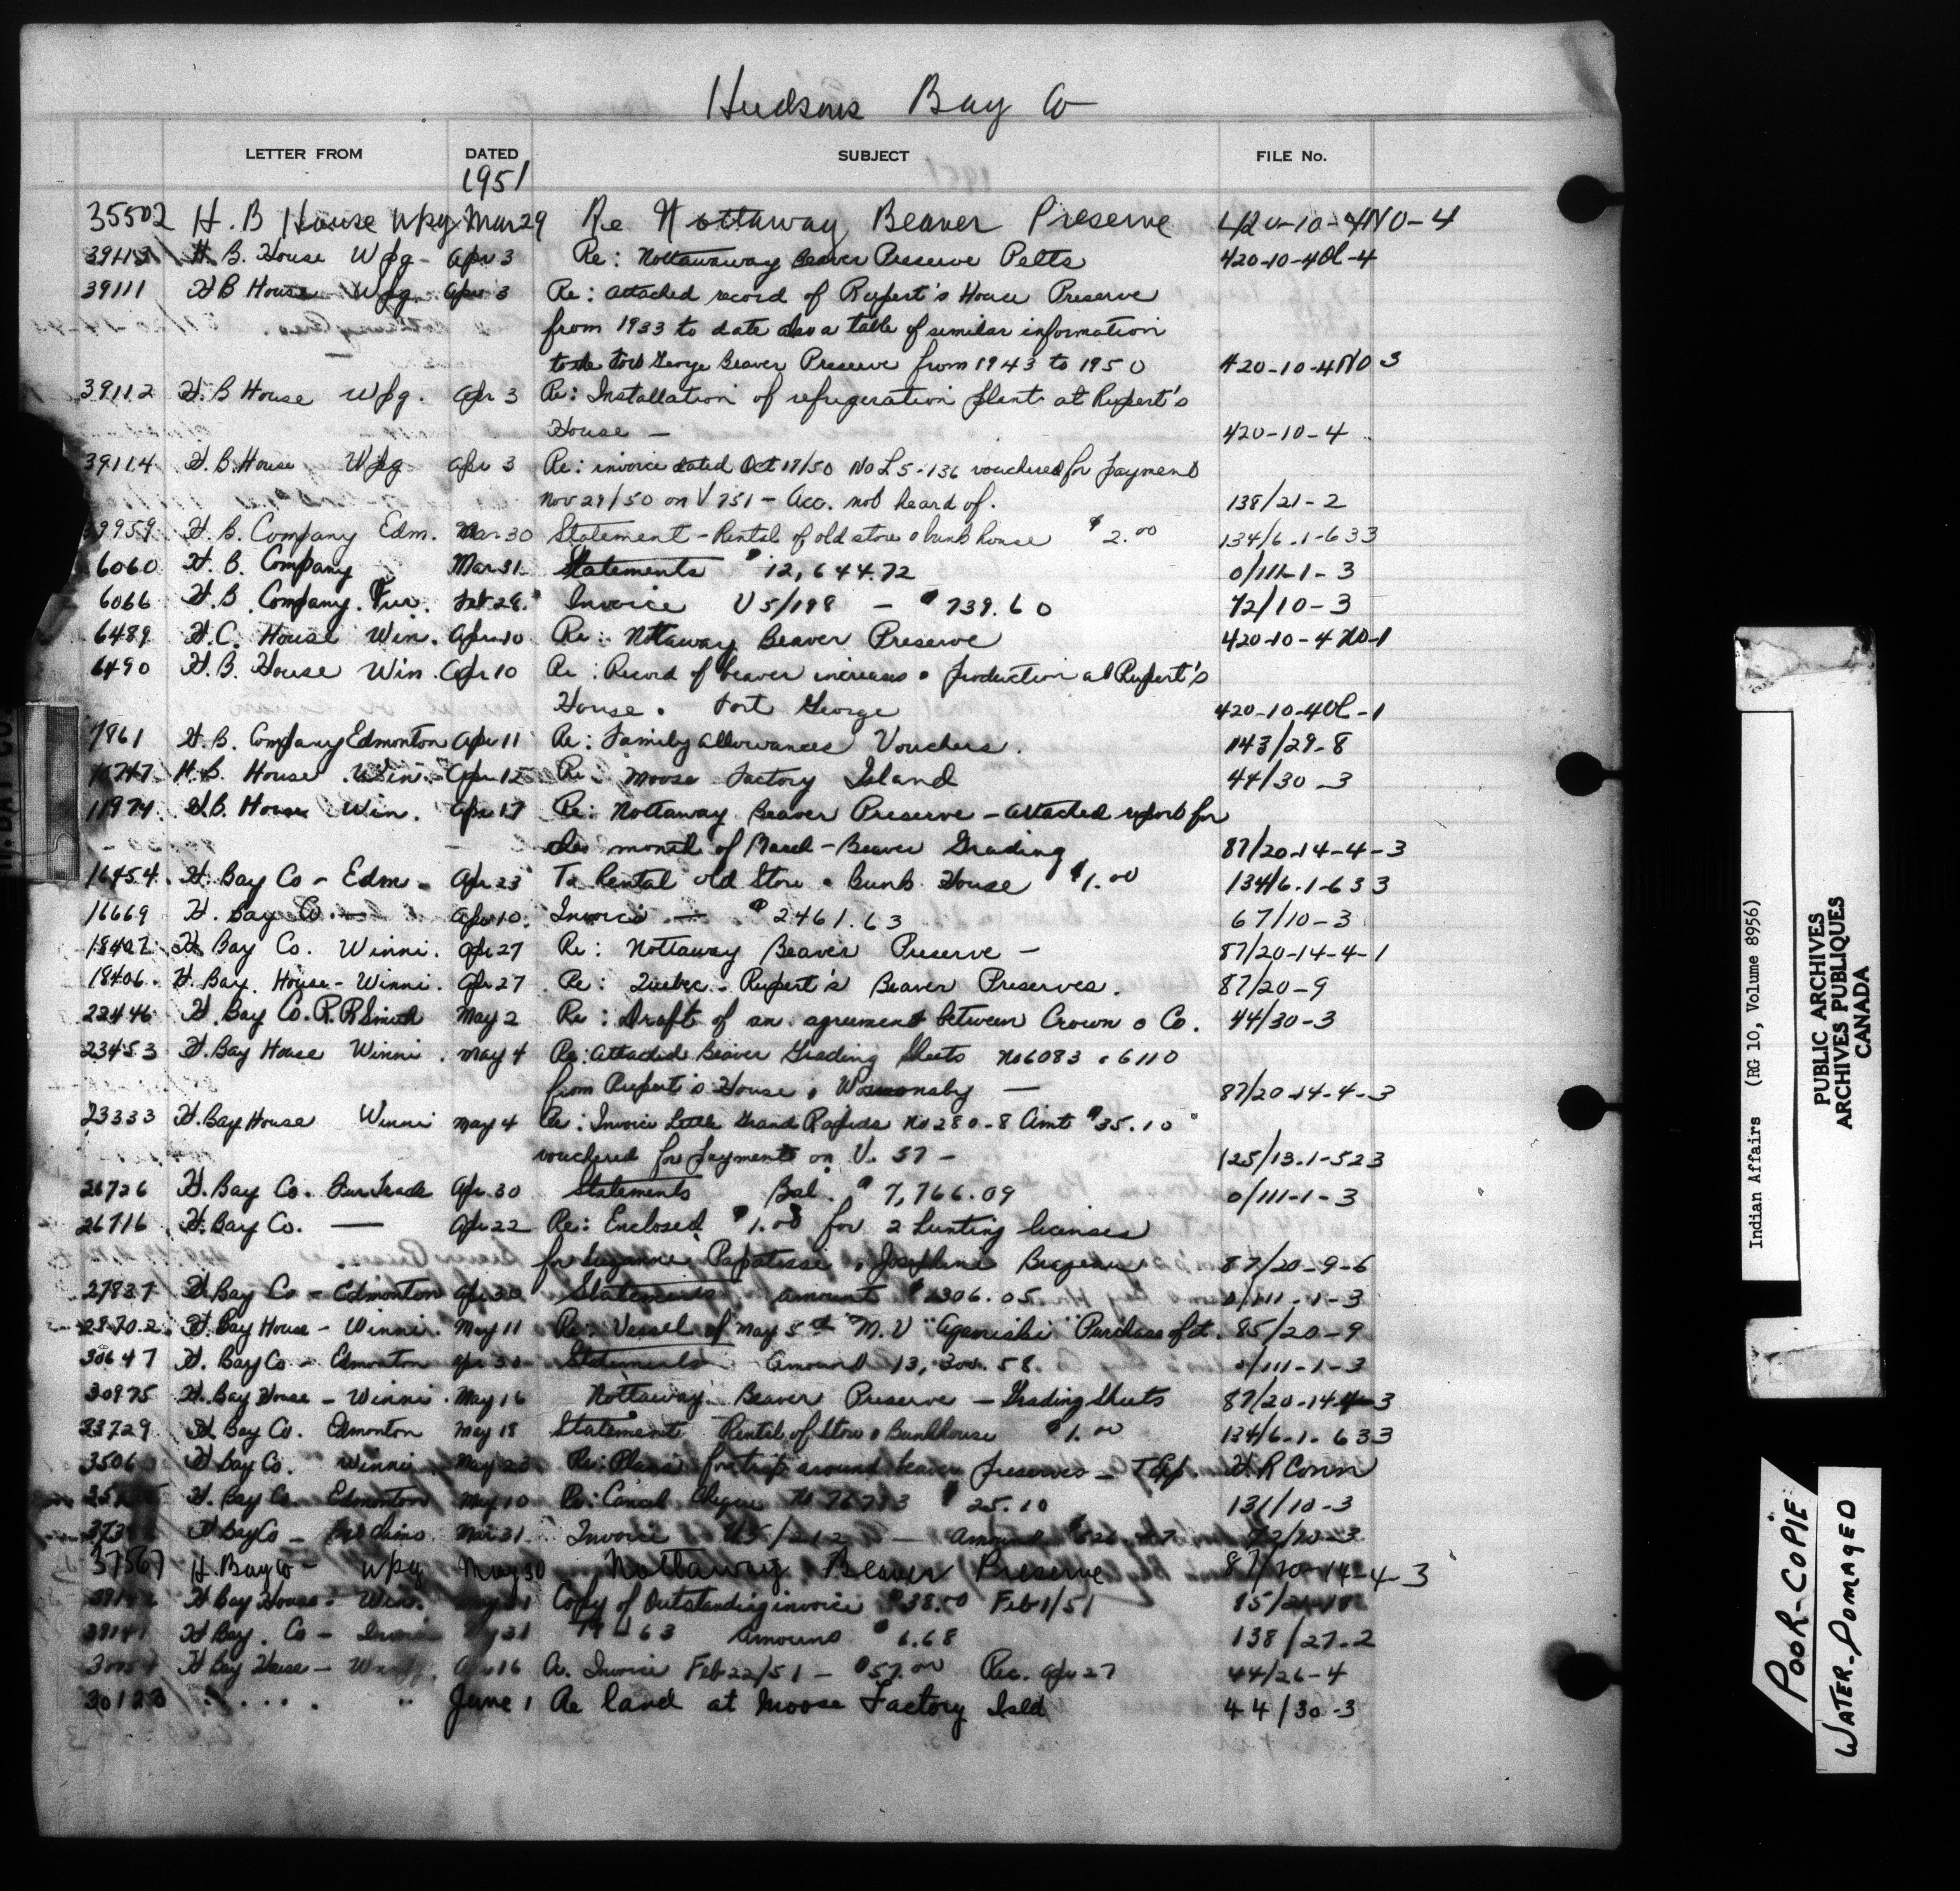 Hudsons Bay Co
LETTER FROM DATED SUBJECT FILE No.
1951
35502 H. B House Wpg Mar 29 Re Nottaway Beaver Preserve 420-10-4NO-4
39113 H. B. House Wpg - Apr 3 Re: Nottawaway Beaver Preserve Pelts 420-10-4 -4
39111 H B House Wpg. Apr 3 Re: Attached record of Rupert's House Preserve
from 1933 to date also a table of similar information
George Beaver Preserve from 1943 to 1950 420-10-4NO-3
39112 H. B House Wpg. Apr 3 Re: Installation of refrigeration plant at Rupert's
House - 420-10-4
39114 H. B. House Wpg Apr 3 Re: invoice dated Oct 19/50 No L5-136 vouchered for payment
Nov 29/50 on V 751 - Acc. not heard of. 138/21-2
39959 H. B. Company Edm. Mar 30 Statement - Rental of old store & bunk house $2.00 134/6.1-633
6060 H. B. Company Mar 31 Statements $12,644.72 0/111-1-3
6066 H. B. Company. Fur. Feb 28. Invoice U5/198 - $739.60 72/10-3
6489 H. C. House Win. Apr 10 Re: Nottaway Beaver Preserve 420-10-4 NO-1
6490 H. B. House Win. Apr 10 Re: Record of beaver increases & production at Rupert's
House & Fort George 420-10-4 -1
7961 H. B. Company Edmonton Apr 11 Re: Family Allowances Vouchers. 143/29-8
10747 H. B. House Win. - Apr 12 Re: Moose Factory Island 44/30-3
11974 H. B. House Win. Apr 17 Re: Nottaway Beaver Preserve - Attached report for
the month of March - Beaver Grading 87/20-14-4-3
16454 H. Bay Co - Edm. Apr 23 To Rental Old Store & Bunk House $1.00 134/6.1-633
16669 H. Bay Co. - Apr 10. Invoice - $2461.63 67/10-3
18407 H. Bay Co. Winni. Apr 27 Re: Nottaway Beaver Preserve - 87/20-14-4-1
18406. H. Bay. House - Winni. Apr 27 Re: Quebec - Rupert's Beaver Preserves. 87/20-9
22446 H. Bay Co. P. R Smith May 2 Re: Draft of an agreement between Crown & Co. 44/30-3
23453 H. Bay House Winni. May 4 Re: Attached Beaver Grading Sheets No 6083 & 6110
from Rupert's House & - 87/20-14-4-3
23333 H. Bay House Winni May 4 Re: Invoice Little Grand Rapids No 280-8 Amt $35.10
vouchered for payment on V. 57 - 125/13.1-523
26726 H. Bay Co. Fur Trade Apr. 30 Statements Bal. $7,766.09 0/111-1-3
26716 H. Bay Co. - Apr 22 Re: Enclosed $1.00 for 2 hunting licenses
for Suzanne Papatisse & Josephine 87/20-9-6
27837 H. Bay Co - Edmonton Apr 30 Statements amount $1306.05 0/111-1-3
28702 H. Bay House - Winni. May 11 Re: Vessel of May 5th M.V "Aganishi" Purchase of it. 85/20-9
30647 H. Bay Co - Edmonton Apr 30 Statements Amount 13,300.58. 0/111-1-3
30975 H. Bay House - Winni. May 16 Nottaway Beaver Preserve - Grading Sheets 87/20-14-4-3
33729 H. Bay Co. Edmonton May 18 Statement Rental of Store & Bunkhouse $1.00 134/6-1-633
3506 H Bay Co. Winni May 23 Re: Plans for trip around beaver preserves - H R Conn
H. Bay Co. Edmonton May 10 Re: Cancel Cheque $25.10 131/10-3
H Bay Co - Mar 31 Invoice U5/212 - Amount 72/10-3
37567 H. Bay Co - Wpg May 30 Nottaway Beaver Preserve 87/20-14-4-3
H Bay House - Win. May 31 Copy of Outstanding invoice $38.50 Feb 1/51 85/
H Bay. Co - 31 63 amount $6.68 138/27-2
H Bay House - Apr 16 Invoice Feb 22/51 - $57.00 Rec. Apr 27 44/26-4
30123 " " June 1 Re land at Moose Factory Isld 44/30-3
Indian Affairs (RG 10, Volume 8956)
PUBLIC ARCHIVES
ARCHIVES PUBLIQUES
CANADA
POOR-COPIE
WATER-DOMAGED